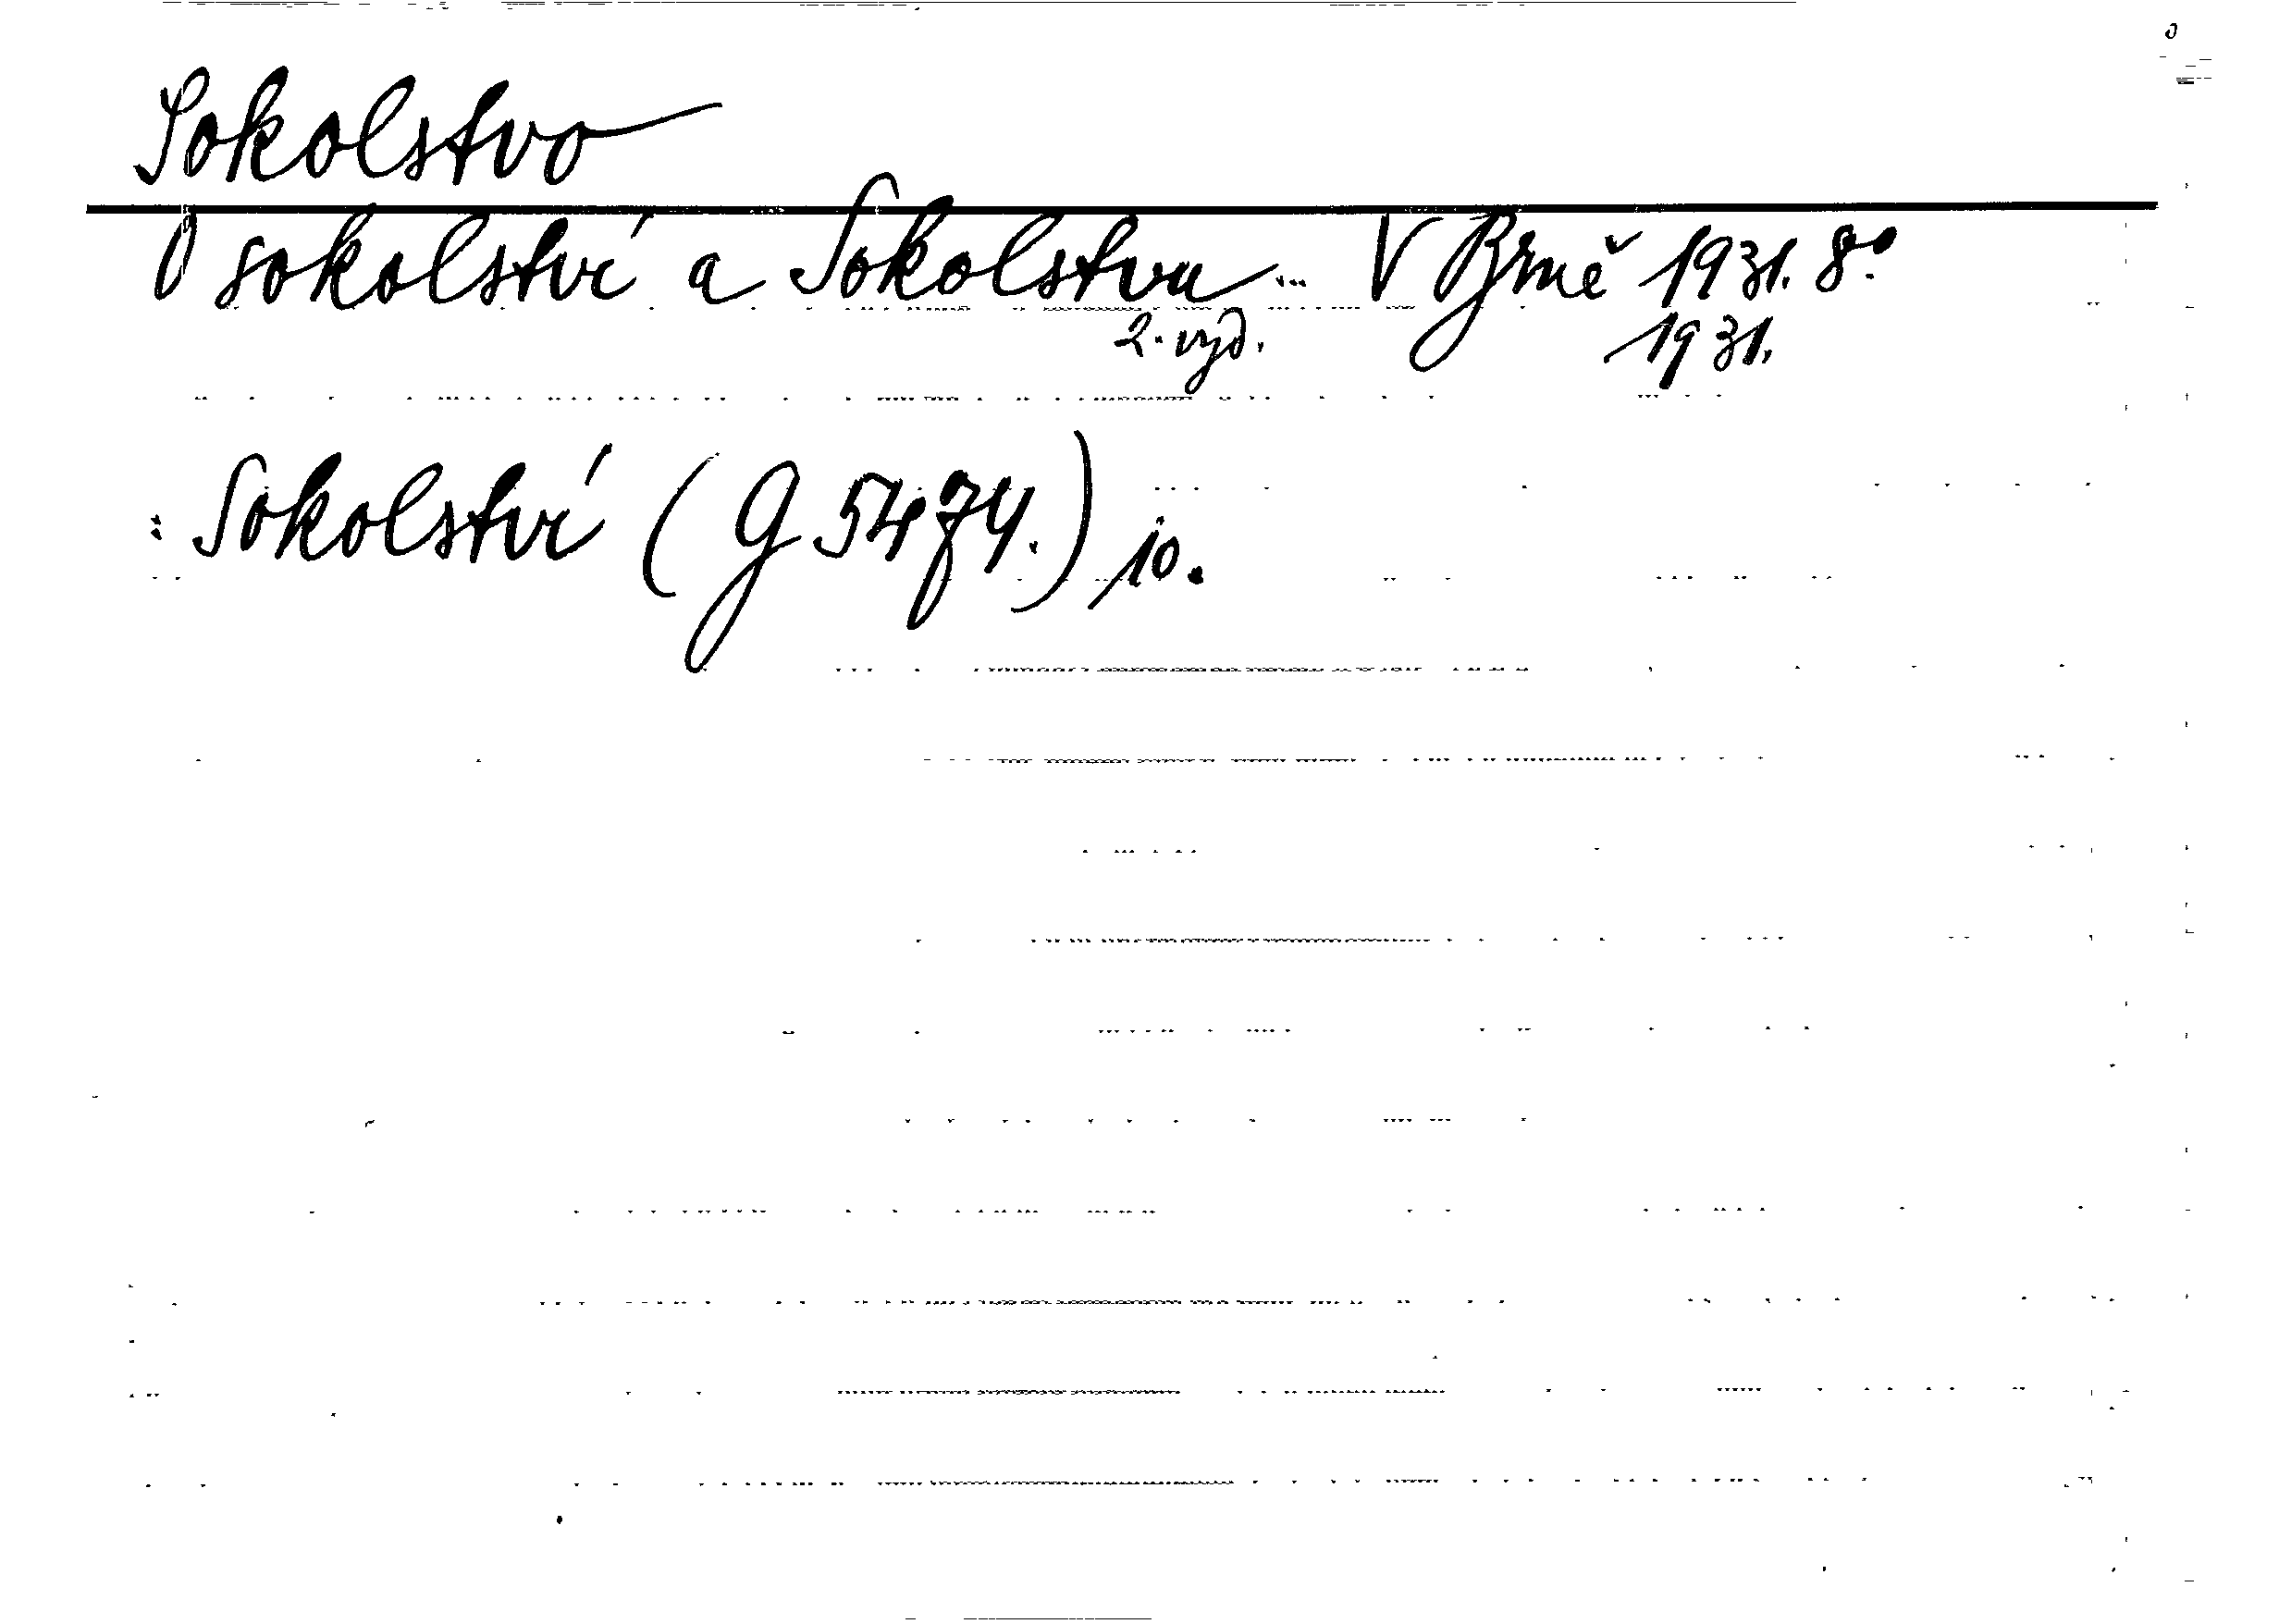 Sokolstvo
O sokolství a Sokolstvu... V Brně 1931. 8°.
2. vyd. 1931.
: Sokolství (G 5474.) 10.